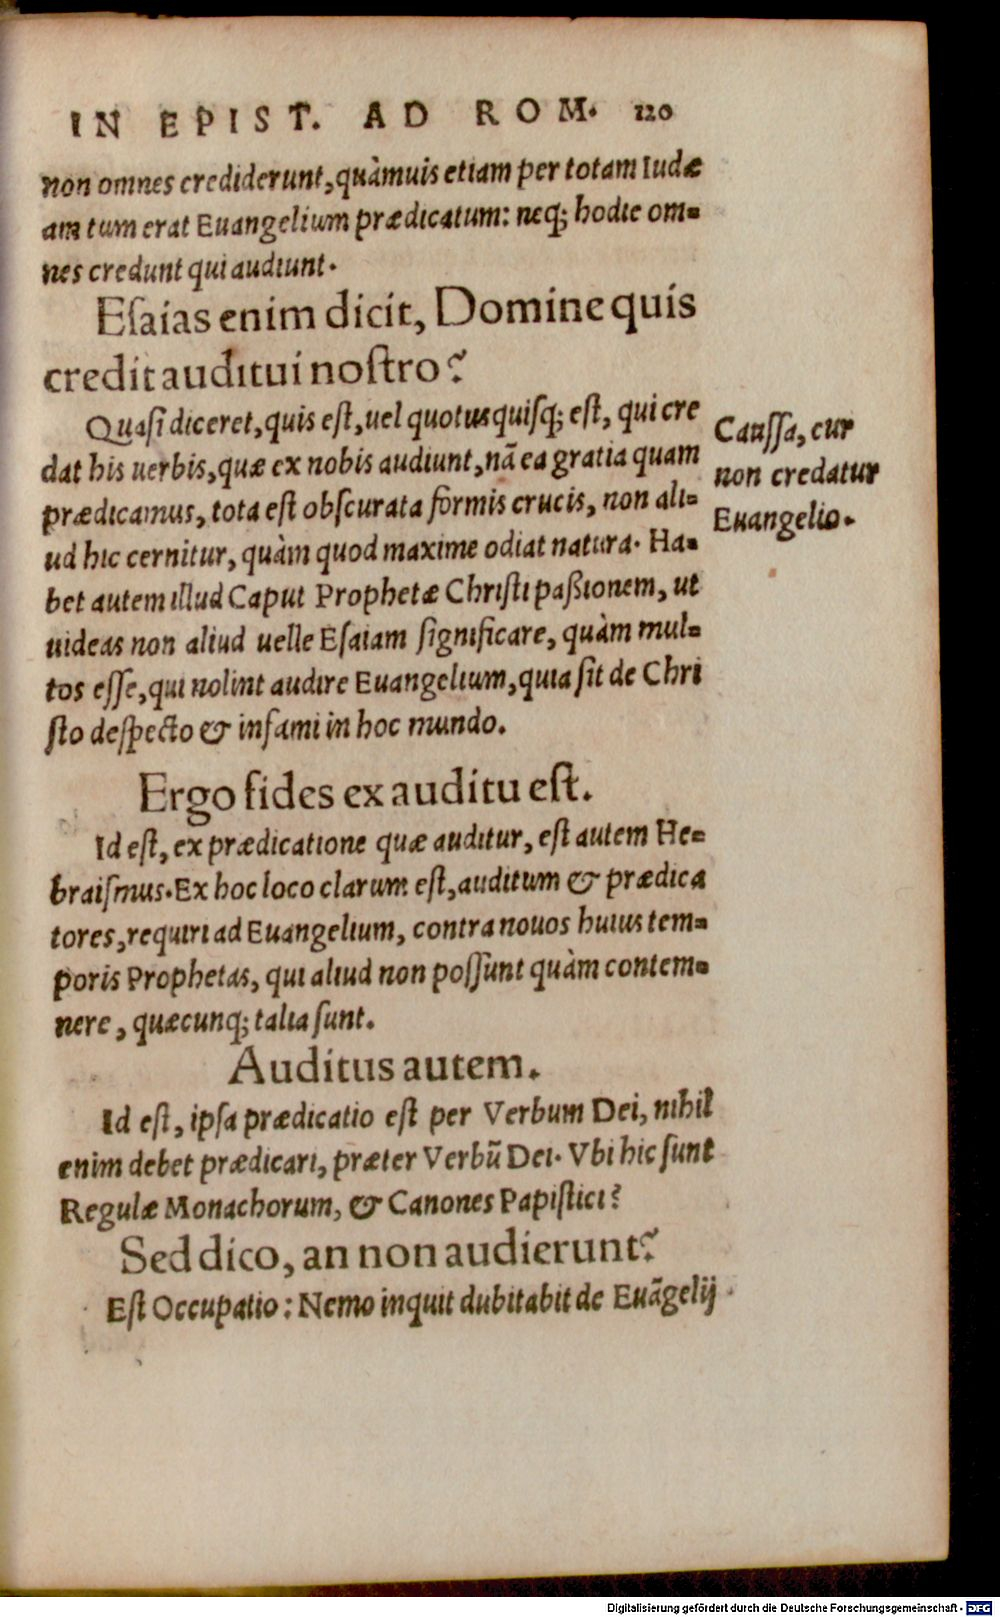 IN EPIST. AD ROM. 120
non omnes crediderunt, quàmuis etiam per totam Iudæ
am tum erat Euangelium prædicatum: neq; hodie om=
nes credunt qui audiunt.
Esaias enim dicit, Domine quis
credit auditui nostro?
Quasi diceret, quis est, uel quotusquisq; est, qui cre
dat his uerbis, quæ ex nobis audiunt, nā ea gratia quam
prædicamus, tota est obscurata formis crucis, non ali=
ud hic cernitur, quàm quod maxime odiat natura. Ha=
bet autem illud Caput Prophetæ Christi paßionem, ut
uideas non aliud uelle Esaiam significare, quàm mul=
tos esse, qui nolint audire Euangelium, quia sit de Chri
sto despecto & infami in hoc mundo.
Caussa, cur
non credatur
Euangelio.
Ergo fides ex auditu est.
Id est, ex prædicatione quæ auditur, est autem He=
braismus. Ex hoc loco clarum est, auditum & prædica
tores, requiri ad Euangelium, contra nouos huius tem=
poris Prophetas, qui aliud non possunt quàm contem=
nere, quæcunq; talia sunt.
Auditus autem.
Id est, ipsa prædicatio est per Verbum Dei, nihil
enim debet prædicari, præter Verbū Dei. Vbi hic sunt
Regulæ Monachorum, & Canones Papistici?
Sed dico, an non audierunt?
Est Occupatio: Nemo inquit dubitabit de Euāgelij
Digitalisierung gefördert durch die Deutsche Forschungsgemeinschaft - DFG